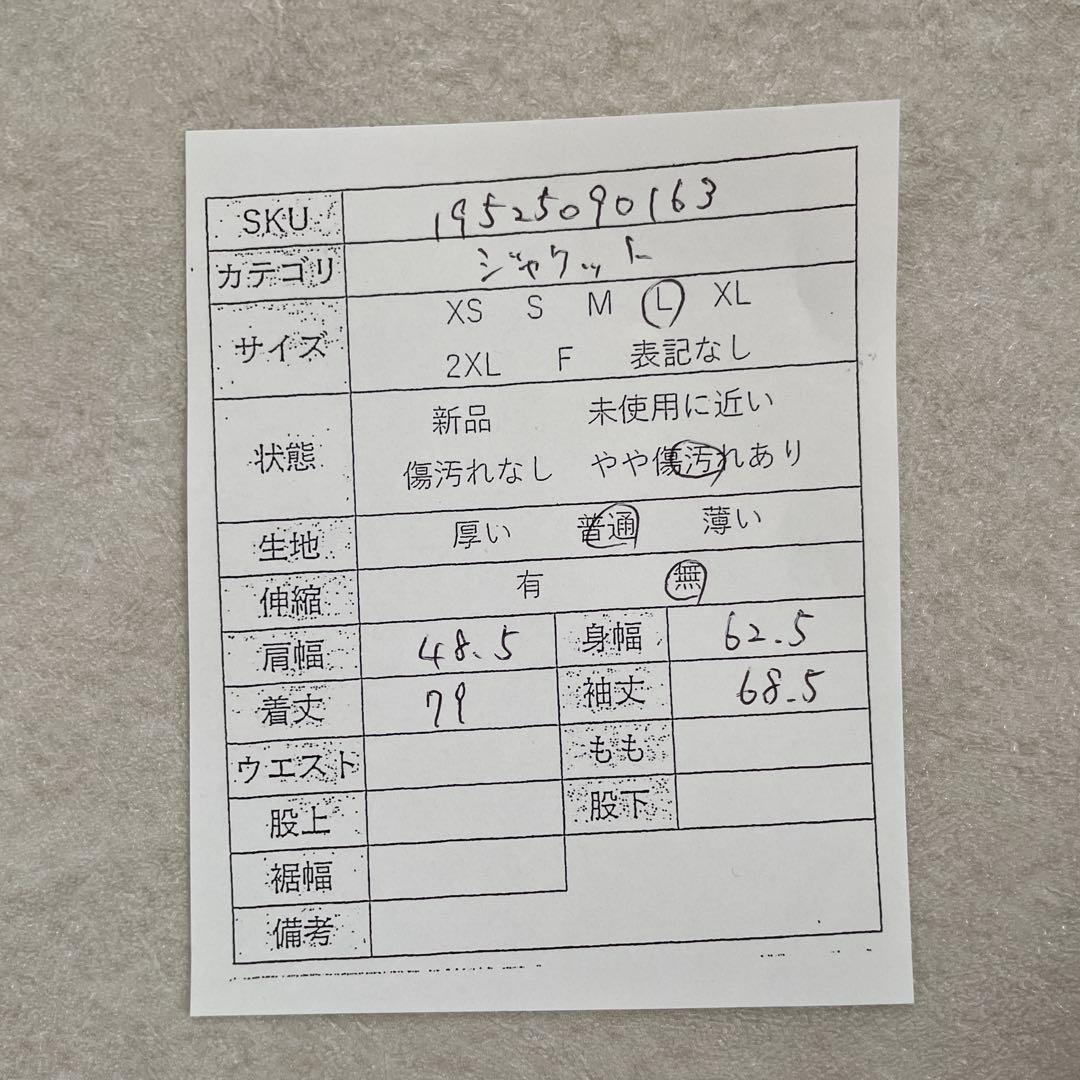 SKU 19525090163
カテゴリ ジャケット
サイズ XS S M L XL
2XL F 表記なし
状態 新品 未使用に近い
傷汚れなし やや傷汚れあり
生地 厚い 普通 薄い
伸縮 有 無
肩幅 48.5 身幅 62.5
着丈 79 袖丈 68.5
ウエスト もも
股上 股下
裾幅
備考